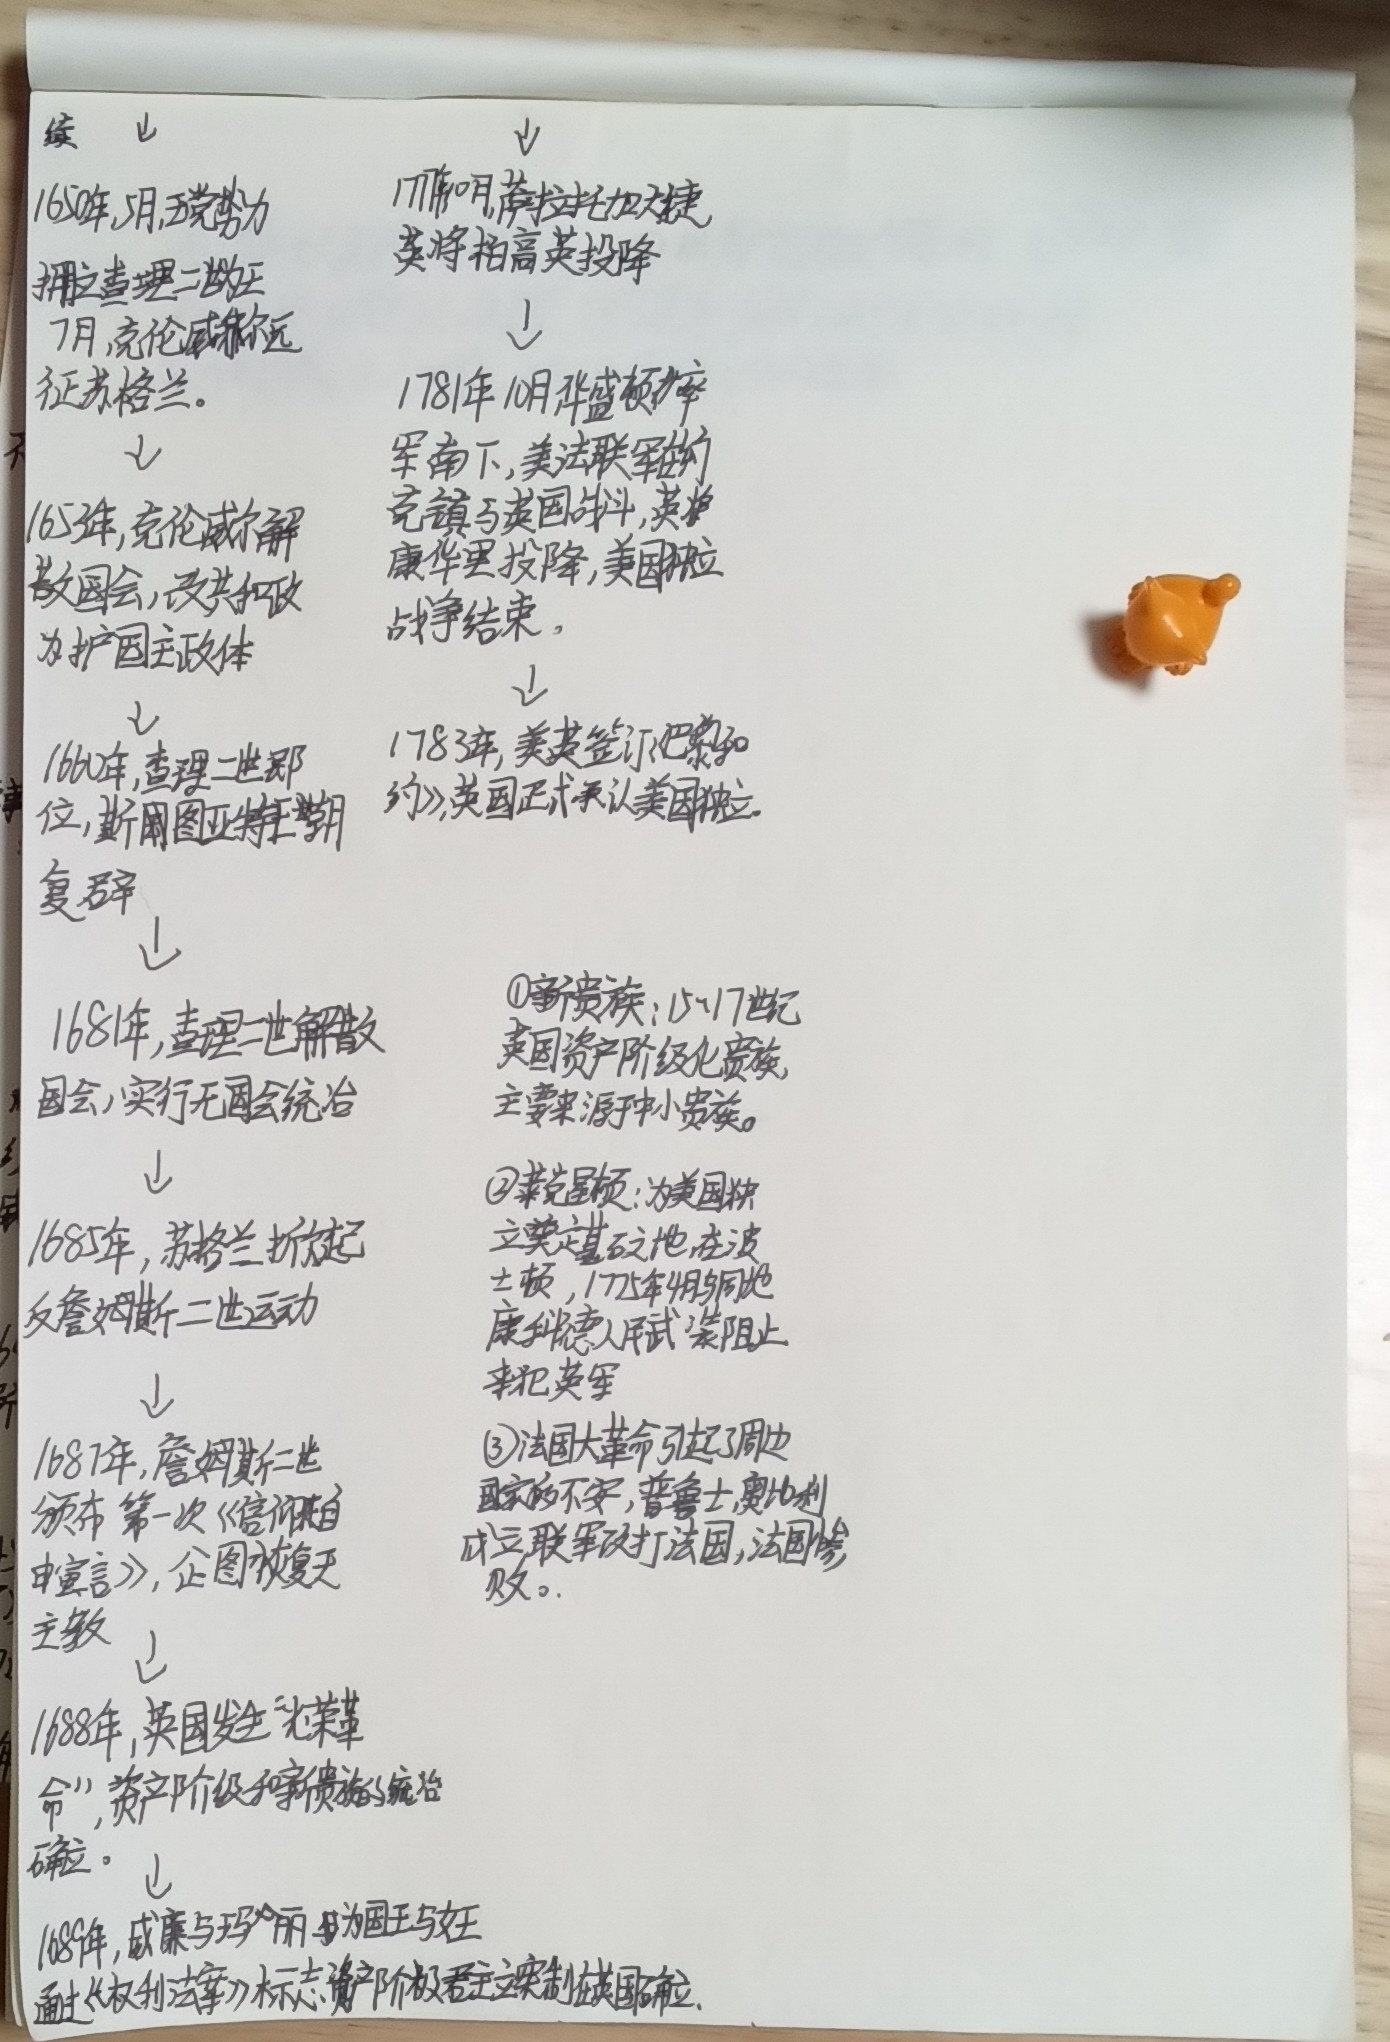 续 ↓
1650年,5月,王党势力
拥立查理二世为王
7月,克伦威尔远
征苏格兰。
↓
1653年,克伦威尔解
散国会,改共和政
为护国主政体
↓
1660年,查理二世即
位,斯图亚特王朝
复辟
↓
1681年,查理二世解散
国会,实行无国会统治
↓
1685年,苏格兰掀起
反詹姆斯二世运动
↓
1687年,詹姆斯二世
颁布第一次《信仰自
由宣言》,企图恢复天
主教
↓
1688年,英国发生“光荣革
命”,资产阶级和新贵族的统治
确立。
↓
1689年,威廉与玛丽为国王与女王
通过《权利法案》标志资产阶级君主立宪制在英国确立.
↓
1777年10月,萨拉托加大捷
英将柏高英投降
↓
1781年10月华盛顿率
军南下,美法联军在约
克镇与英国战斗,英将
康华里投降,美国独立
战争结束。
↓
1783年,美英签订《巴黎和
约》,英国正式承认美国独立。
①新贵族:15~17世纪
英国资产阶级化贵族,
主要来源于中小贵族。
②莱克星顿:为美国独
立奠定基石之地,在波
士顿,1775年4月与同地
康科德人民武装阻止
来犯英军
③法国大革命引起了周边
国家的不安,普鲁士,奥地利
成立联军攻打法国,法国惨
败。